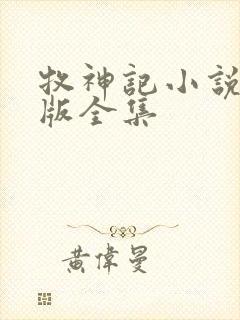 牧神記小說
版全集
黃偉曼